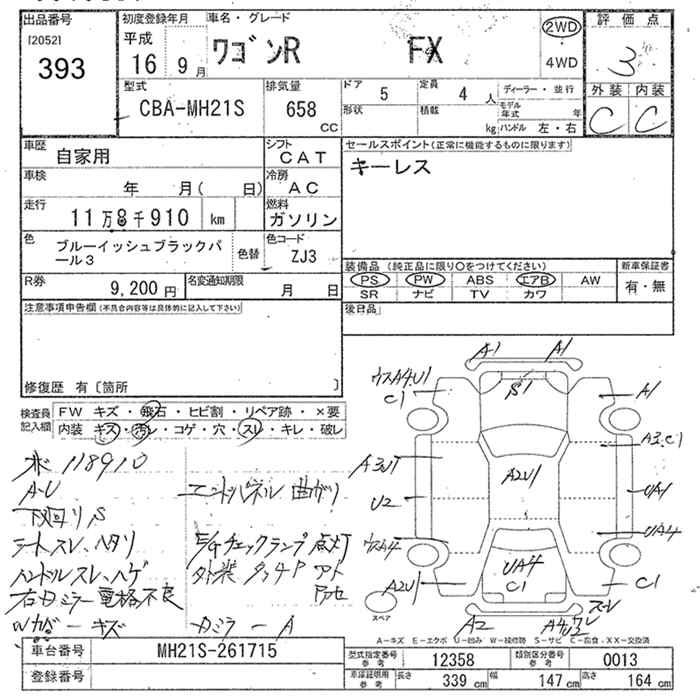 出品番号
[2052]
393
初度登録年月
平成
16 9月
車名・グレード
ワゴンR FX
2WD
4WD
評価点
3
外装 内装
C C
型式
CBA-MH21S
排気量
658
CC
ドア 5
定員 4 人
形状
積載 kg
ディーラー・並行
モデル年式 年
ハンドル 左・右
車歴
自家用
シフト
CAT
車検
年 月( 日)
冷房
AC
走行
11万8千910 km
燃料
ガソリン
色
ブルーイッシュブラックパール3
色替
色コード
ZJ3
R券
9,200円
名変通知期限
月 日
セールスポイント(正常に機能するものに限ります)
キーレス
装備品(純正品に限り○をつけてください)
PS PW ABS エアB AW
SR ナビ TV カワ
新車保証書
有・無
注意事項申告欄(不具合内容等は具体的に記入して下さい)
後日品
修復歴 有〔箇所 〕
検査員記入欄
FW キズ・飛石・ヒビ割・リペア跡・×要
内装 キズ・汚レ・コゲ・穴・スレ・キレ・破レ
118910
A・U
下回りS
シートスレ、ヘタリ
ハンドルスレ、ハゲ
右ドミラー電格不良
キズ
エンドパネル曲がり
E/Gチェックランプ点灯
外装タッチP アト
カミラーA
A1 A1
ウスA4U1
C1
S1
A1
A3.C1
A3U1
A2U1
U2
UA1
ウスA4
UA4
UA4
C1
A2U1
C1
A2
スペア
A-キズ E-エクボ U-凹み W-補修跡 S-サビ C-腐食.XX-交換済
車台番号
MH21S-261715
登録番号
型式指定番号 参考
12358
類別区分番号 参考
0013
車庫証明用 参考
長さ 339 cm 幅 147 cm 高さ 164 cm